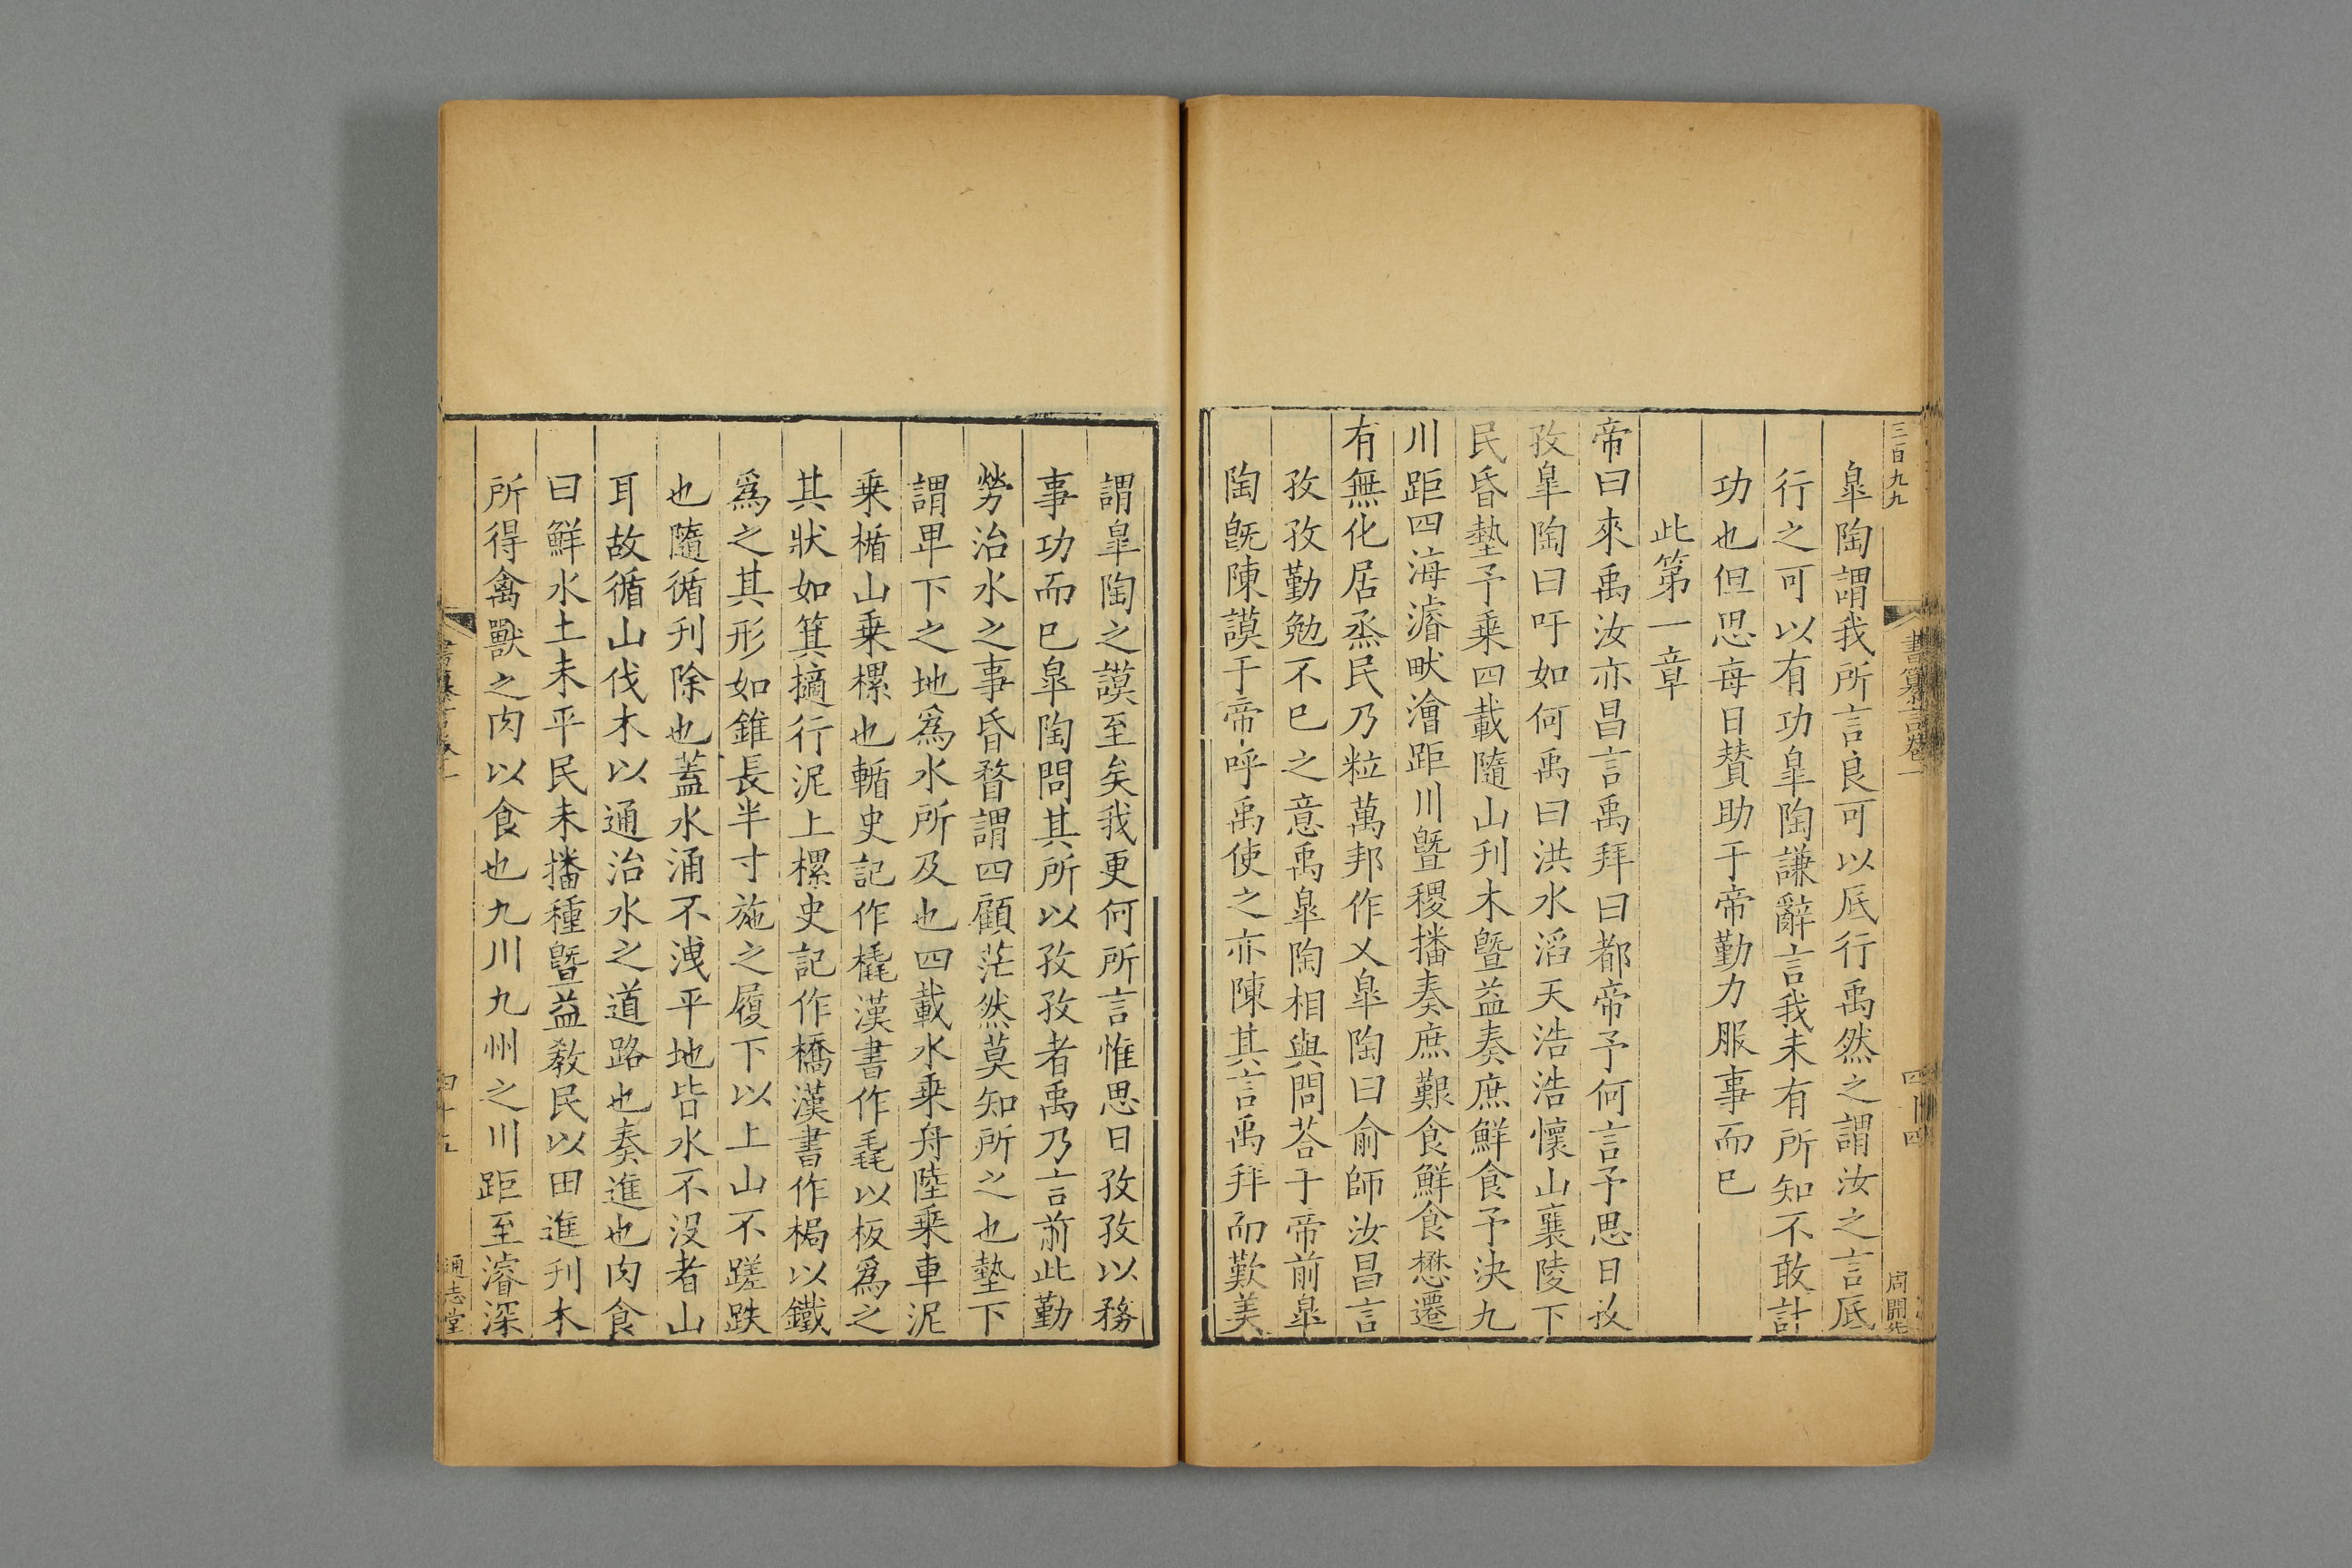 三百九九
書纂言卷一
四十四
周開
皐陶謂我所言良可以底行禹然之謂汝之言厎
行之可以有功皐陶謙辭言我未有所知不敢計
功也但思每日賛助于帝勤力服事而已
此第一章
帝曰來禹汝亦昌言禹拜曰都帝予何言予思日孜
孜皐陶曰吁如何禹曰洪水滔天浩浩懷山襄陵下
民昏墊予乗四載隨山刋木曁益奏庶鮮食予決九
川距四海濬畎澮距川曁稷播奏庶艱食鮮食懋遷
有無化居烝民乃粒萬邦作乂皐陶曰俞師汝昌言
孜孜勤勉不已之意禹皐陶相與問荅于帝前皐
陶旣陳謨于帝帝呼禹使之亦陳其言禹拜而歎美
謂皐陶之謨至矣我更何所言惟思日孜孜以務
事功而已皐陶問其所以孜孜者禹乃言前此勤
勞治水之事昏瞀謂四顧茫然莫知所之也墊下
謂卑下之地爲水所及也四載水乗舟陸乗車泥
乗楯山乗樏也輴史記作橇漢書作毳以板爲之
其狀如箕擿行泥上樏史記作橋漢書作梮以鐵
爲之其形如錐長半寸施之履下以上山不蹉跌
也隨循刋除也蓋水涌不洩平地皆水不没者山
耳故循山伐木以通治水之道路也奏進也肉食
曰鮮水土未平民未播種曁益敎民以田進刋木
所得禽獸之肉以食也九川九州之川距至濬深
四十五
通志堂